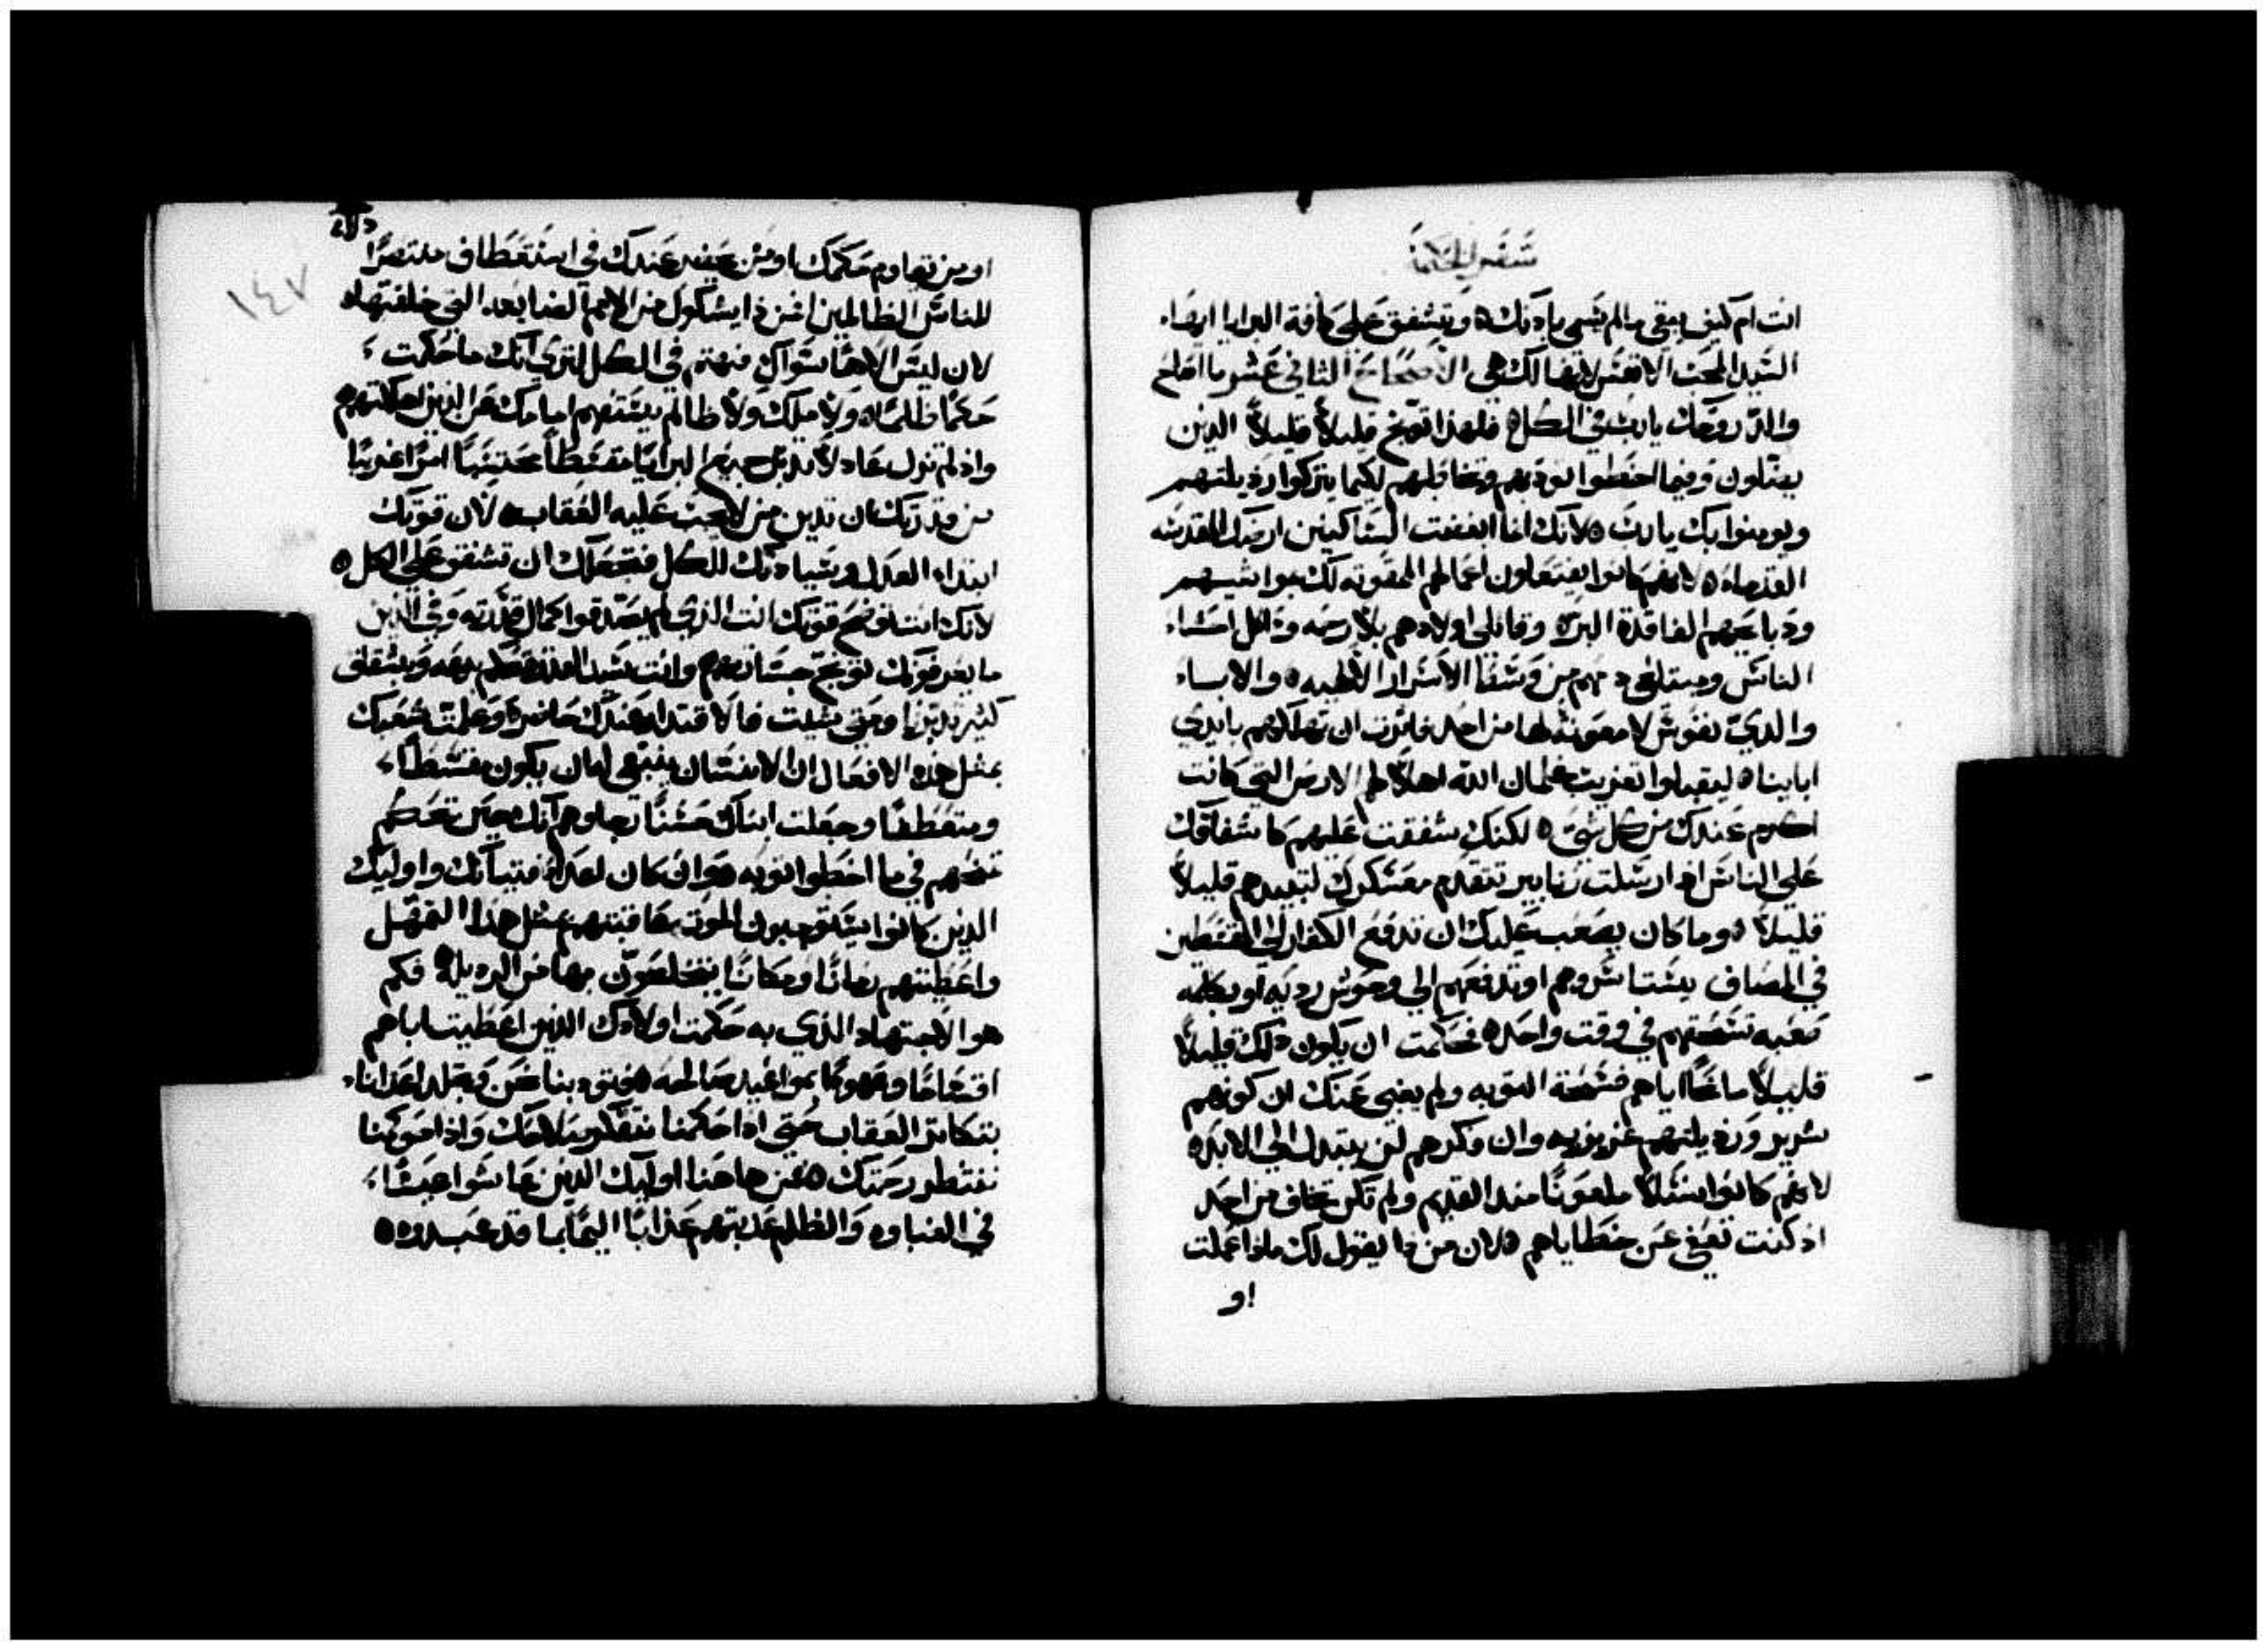 سفر الحكمة
انت ام كيف يبقى ما لم يسمى بارادتك وتشفق على كافة البرايا ايها
السيد المحب الانفس لانها لك هي الاصحاح الثاني عشر ما اصلح
والذ روحك يا رب في الكل فلهذا توبخ قليلاً قليلاً الذين
يضلون وفيما اخطوا تودبهم وتخاطبهم لكيما يتركوا رذيلتهم
ويومنوا بك يا رب لانك انما ابغضت الساكنين ارضك المقدسه
القدماء لانهم كانوا يفتعلون اعمالهم الممقوته لك بموا
وذبايحهم الفاقدة البر وقاتلي اولادهم بلا رحمه واكل احشاء
الناس ومبتلعي دمهم من وسط الاسرار الالهيه والابناء
والدي نفوس لا معونة لها من احد فاثرت ان تهلكهم بايدي
اباينا ليقبلوا تغريب غلمان الله اهلاً لها الارض التي كانت
اكرم عندك من كل شي لكنك شفقت عليهم كاشفاقك
على الناس اذ ارسلت زنابير تتقدم معسكرك لتبيدهم قليلاً
قليلاً وما كان يصعب عليك ان تدفع الكفار الى المقسطين
في المصاف او تدفعهم الى وحوش رديه او بكلمه
صعبه تسحقهم في وقت واحد فحكمت ان يكون ذلك قليلاً
قليلاً مانحاً اياهم فسحة التوبه ولم يغبى عنك ان كونهم
شرير ورذيلتهم غريزيه وان فكرهم لن يتبدل الى الابد
لانهم كانوا نسلاً ملعوناً منذ القديم ولم تكن تخاف من احد
اذ كنت تصفح عن خطاياهم لان من ذا يقول لك ماذا عملت
او
او من يقاوم حكمك او من عندك في منتصراً
للناس الظالمين او من ذا يشكوك من الامم التي خلقتها
لان ليس الاهاً سواك مهتم في الكل لتري انك ما حكمت
حكماً ظلماً ولا ملك ولا ظالم امامك عن الذين اهلكتهم
واذ لم تزل عادلاً تدبر جميع البرايا مقسطاً محتسباً امراً غريباً
من قدرتك ان تدين من لا يجب عليه العقاب لان قوتك
ابتداء العدل وسيادتك للكل تجعلك ان تشفق على الكل
لانك انت توضح قوتك انت الذي لم يصدقوا كمال قدرته وفي الذين
ما يعرفونك توبخ جسارتهم وانت سيد القدرة تحكم وباشفاق
كثير تدبرنا ومتى شيت فالاقتدار عندك حاضر وعلمت شعبك
بمثل هذه الافعال ان الانسان ينبغي له ان يكون مقسطاً
ومتعطفاً وجعلت ابناك حسناً رجاوهم انك حين تحكم
تمنحهم في ما اخطوا توبه وان كان اعداء فتيانك واوليك
الذين كانوا يستوجبون الموت عاقبتهم بمثل هذا التمهل
واعطيتهم زماناً ومكاناً يتخلصون بهما من الرذيله فكم
هو الاجتهاد الذي به حكمت اولادك الذين اعطيت اباهم
اقساماً وعهوداً بمواعيد صالحه فتودبنا نحن وتجلد اعداناء
بتكاثر العقاب حتى اذا حكمنا نتفكر بصلاحك واذا حوكمنا
ننتظر رحمتك فمن هاهنا اوليك الذين عاشوا عبثاً
في الغباوه والظلم عذبتهم عذاباً اليماً بما قد عبدوه
١٤٧